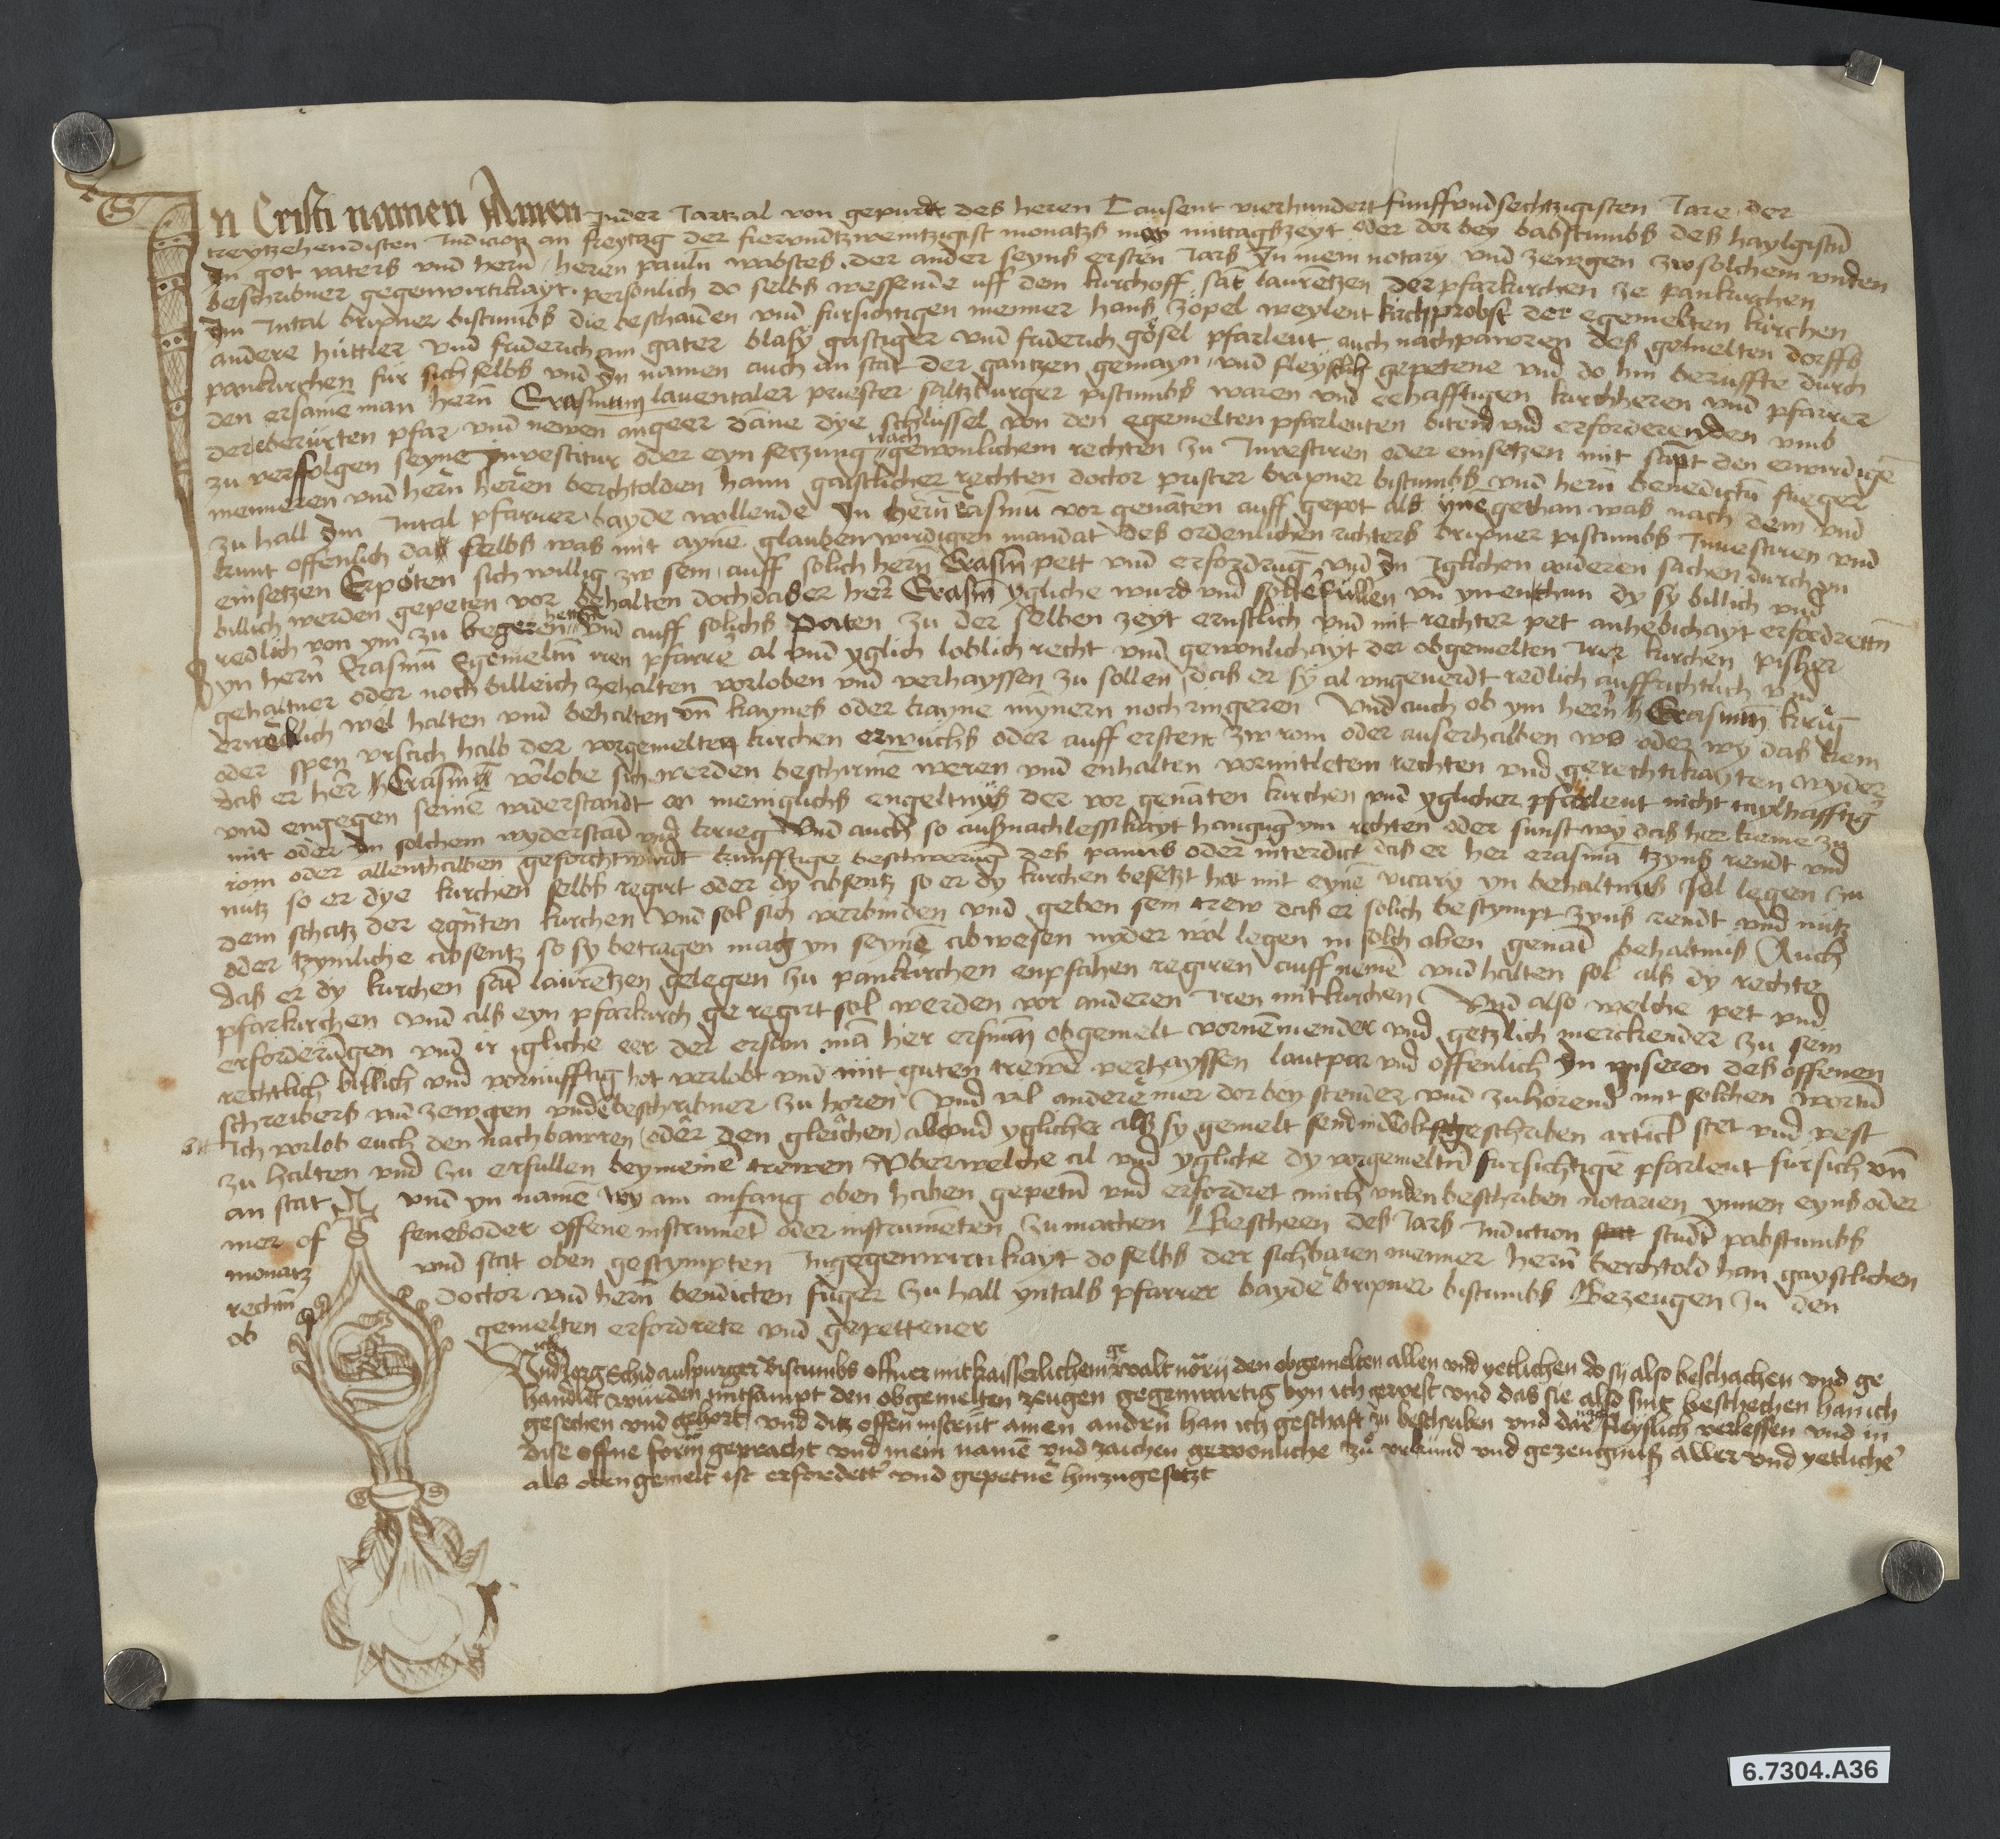 In Cristi namen Amen In der Jartzal von gepurdt des heren Tausent vierhundert funffvndsechtzigisten Jare der
treytzehendisten Indicion an freytag der fierundtzweintzigist monatzs mittagszeyt oder dor bey babstumbs des haylgistn̄
In got vaters vnd hern̄ heren pauln wabstes der ander seyns ersten Jars In mein notary vnd zewgen zw solchem vnden
beschribner gegenwirtikayt personlich do selbs wessende uff dem kirchoff sāt laurentzen der pfarkirchen ze pankirchen
Im Intal brixner bistumbs die beschaiden vnd fursichtigen menner hans zopel weylent kirchprobst der egemelten kirchen
andere hüttler vnd friderich am gater blasy gastiger vnd friderich gösel pfarleut auch nachpawren des gemelten dorffs
pankirchen für sich selbs vnd In namen auch an stat der gantzen gemayn vnd fleyslich gepetene vnd do hin berüffte durch
den ersame man hern̄ Erasmum lauentaler priester saltzburger pistumbs waren vnd eehafftigen kirchheren vnd pfarrer
der berürten pfar vnd newen angeer dāne dye schlüssel von den egemelten pfarleuten bitend vnd erforderenden vmb
zu verffolgen seyne Investitur oder eyn seczung nach gewonlichem rechten zu Investiren oder einsetzen mit sāpt den erwirdigē
menneren vnd hern̄ heren berchtolden hann gaistlicher rechten doctor prister brixner bistumbs vnd hern̄ benedictn̄ fueger
zu hall Im Intal pfarrer bayde wollende In hern̄ erasmū vor genāten auff gepot als yne gethan was nach dem vnd
kunt offenlich das selbs was mit ayne glaubenwirdigen mandat des ordenlichen richters brixner pistumbs Investiren vnd
einsetzen Erpöten sich willig zw sein auff solich hern̄ Erasm̄ pett vnd erfordrug vnd In Iglichen anderen sachen durch yn
billich werden gepeten vor behalten doch das der her Erasm̄ ygliche wurd vnd solt erfüllen vn̄ ynen thun dy sy billich vnd
redlich von ym zu begeren heten vnd auff solichs Paten zu der selben zeyt ernstlich vnd mit rechter pet anhebichayt erfordrettn̄
yn hern̄ Erasmū Egemeltn̄ iren pfarre al vnd yglich loblich recht vnd gewonlichayt der obgemelten Irer kirchen pisher
gehaltner oder noch billeich zehalten vorloben vnd verhayssen zu sollen das er sy al vngeuerdt redlich auffrichtlich vnd
erwerlich wel halten vnd behalten vn̄ kaynes oder kayne mynern noch ringeren Vnd auch ob ym hern̄ Erasmum krieg
oder spen vrsach halb der vorgemelten kirchen erwüchs oder auff ersten zw rom oder auserhalben wo oder wy das kem
das er her Erasmū vorlobe sich werden beschirme weren vnd enhalten vormitletem rechten vnd gerechtikayten wyder
vnd engegen seine widerstandt on meniglichs engeltnüs der vor genāten kirchen vnd yglicher pfarleut nicht taylhafftig
mit oder In solchem wyderstād vnd krieg Vnd auch so aufznachlessikayt hangug ym rechten oder sunst wy das her keme zu
rom oder allenthalben geforcht wurdt kunfftige beschwerūg des panns oder interdict das er her erasmā tzyns rendt vnd
nutz so er dye kirchen selbs regirt oder dy absentz so er dy kirchen besetzt hot mit eyne vicary yn behaltnus sol legen zu
dem schatz der egn̄ten kirchen vnd sol sich verbinden vnd geben sein trew das er solich bestympt zyns rendt vnd nutz
oder tzymliche absentz so sy betragen mag yn seyne abwesen nyder wol legen in solch oben genāt behaltnus Auch
das er dy kirchen sāt laurētzen gelegen zu pankirchen enpfahen regiren auff neme vnd halten sol als dy rechte
pfarkirchen vnd als eyn pfarkirch ge regirt sol werden vor anderen Iren mitkirchen Vnd also welche pet vnd
erforderungen vnd ir igliche eer der ersam mā her ersmū obgemelt vornemender vnd getzlich merckender zu sein
rechtlich billich vnd vornufftig hot verlobt vnd mit guten trewē verhayssen lautpar vnd offenlich In vnseren des offenen
schreibers vnd zewgen vnde beschribner zu horen vnd vil anderē mer dor bey stender vnd zuhorend mit solchen wortn̄
Ich vorlob euch den nachbawren (oder den gleichen) al vnd yglicher als sy gemelt send in den obgeschriben artickl stet vnd vest
zu halten vnd zu erfullen bey meine trewen Vber welche al vnd ygliche dy vorgemeltn̄ fursichtigē pfarleut fur sich vn̄
an stat vnd yn namē wy am anfang oben haben gepetn̄ vnd erfordret mich vnden beschriben notarien ynnen eyns oder
mer of fenes oder offene instrumet oder instrumēten zu machen Bescheen des Jars Indiction stund pabstumbs
monatz vnd stat oben gestympten In gegenwirtikayt do selbs der sichbaren menner hern̄ berchtold han gaystlichen
rechtn̄ doctor vnd hern̄ bendicten füger zu hall yntals pfarrer bayde brixner bistumbs Bezeugen zu den
ob gemelten erfordrete vnd gepettener
Vnd ich Jorg Schid auspurger bistumbs offner mit kaisserlichem gewalt notarij den obgemelten allen vnd yetlichen do sy also beschachen vnd ge
handlet würden mitsampt den obgemelten zeugen gegenwurtig byn ich gewest vnd das sie also sint beschechen han ich
gesechen vnd gehort vnd ditz offen instrūt amen andrn̄ han ich geschaft zu beschriben vnd dar nach fleyslich verlessen vnd in
dise offne form gepracht vnd mein namē vnd zaichen gewonliche zu vrkund vnd gezeugnüs aller vnd yetliche
als oben gemelt ist erfordett vnd gepetne hinzugesetzt
6.7304.A36